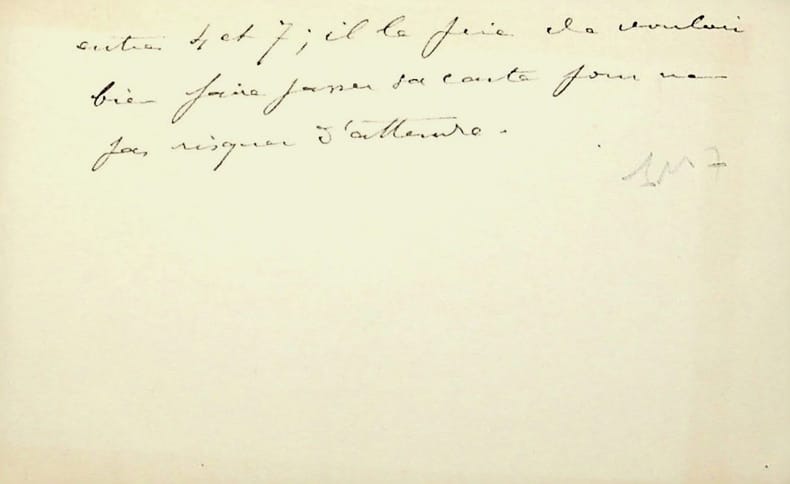 entre 4 et 7 ; il le prie de vouloir
bien faire passer sa carte pour ne
pas risquer d'attendre.